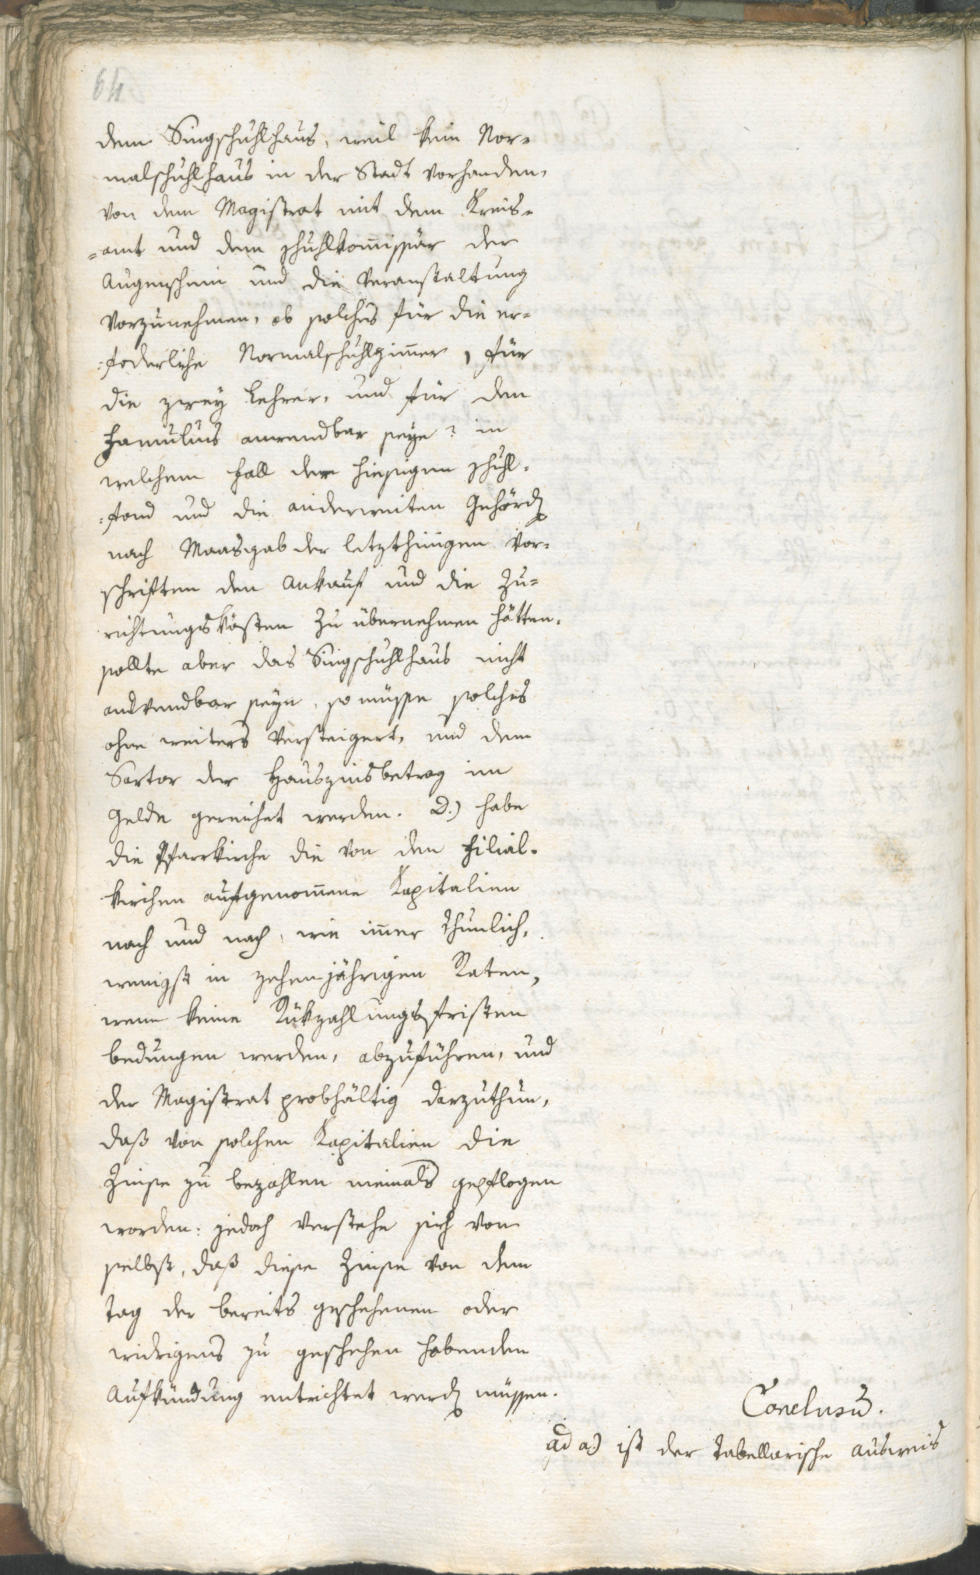 64
dem Singschuhlhaus, weil kein Nor-
malschuhlhaus in der Stadt vorhanden,
von dem Magistrat mit dem Kreis-
-amt und dem Schuhlkom̄issär der
Augenschein und die Veranstaltung
vorzunehmen, ob solches für die er-
-foderliche Normalschuhlzim̄er, für
die zwey Lehrer, und für den
Famulus anwendbar seye? in
welchem Fall der hiesigen Schuhl-
-fond und die anderweiten Gehörd
nach Maasgab der letzthinigen Vor-
schriften den Ankauf und die Zu-
richtungskösten zu übernehmen hätten.
sollte aber das Singschuhlhaus nicht
anwendbar seyn, so müsse solches
ohne weiters versteigert, und dem
Sartor der Hauszinsbetrag im
Gelde gereichet werden. D.) habe
die Pfarrkirche die von den Filial-
kirchen aufgenom̄ene Kapitalien
nach und nach, wie im̄er thunlich,
wenigst in zehenjährigen Raten,
wenn keine Rükzahlungsfristen
bedungen werden, abzuführen, und
der Magistrat probhältig darzuthun,
daß von solchen Kapitalien die
Zinse zu bezahlen niemals gepflogen
worden: jedoch verstehe sich von
selbst, daß diese Zinse von dem
Tag der bereits geschehenen oder
widrigens zu geschehen habenden
Aufkündung entrichtet werd müssen.
Conclusū.
ad a) ist der tabellarische Ausweis